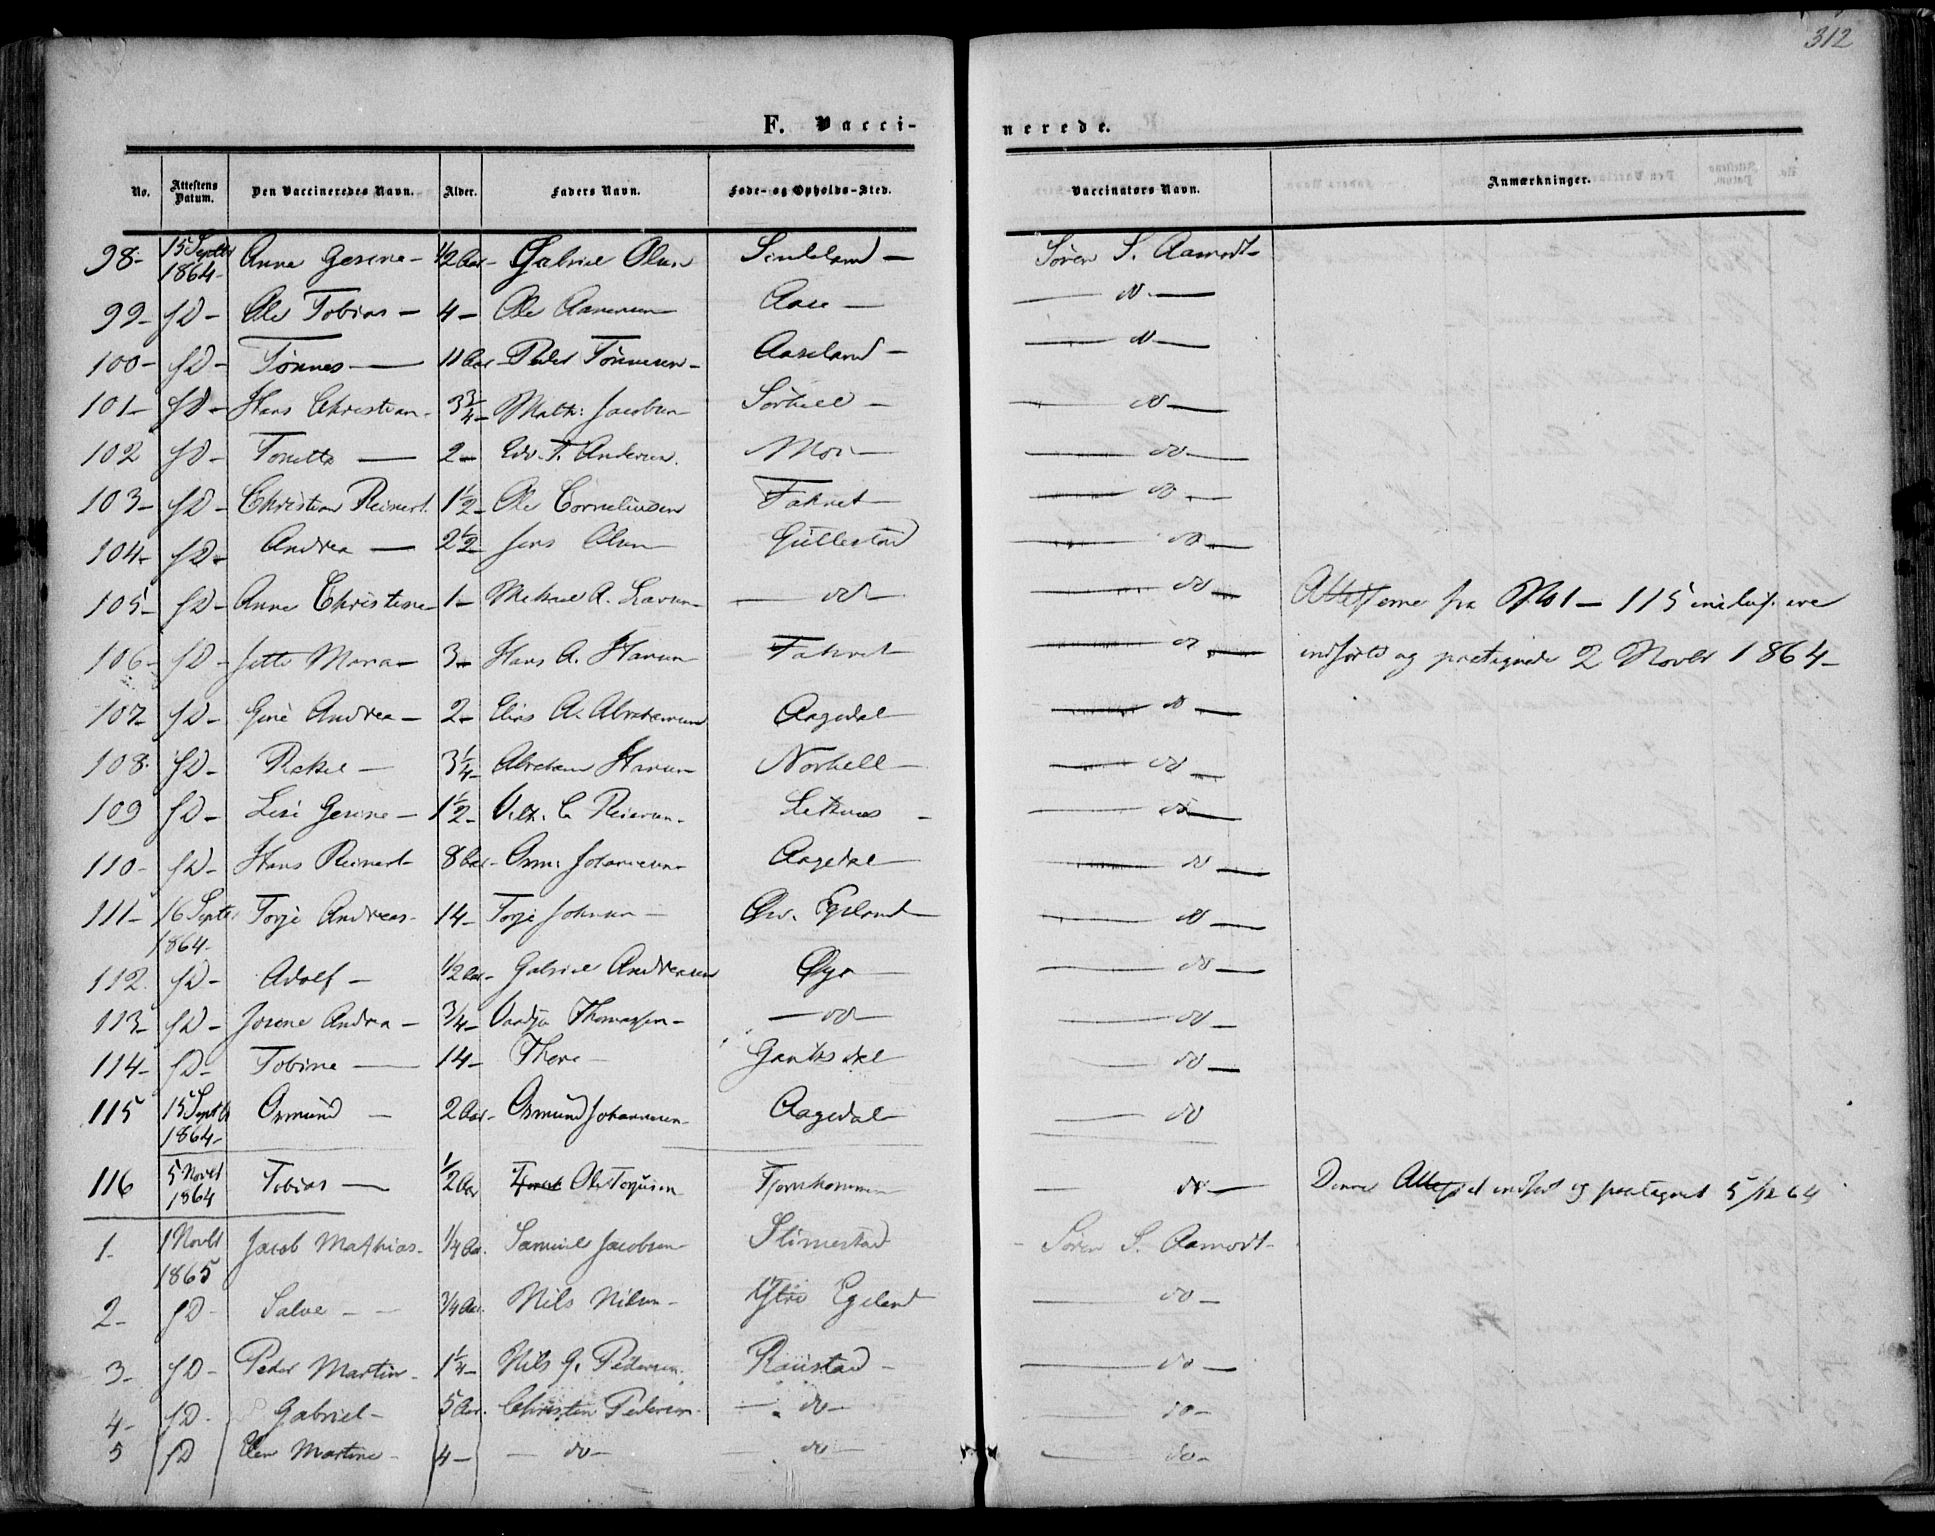 312
F. Vacci-
nerede.
No. Attestens Datum. Den Vaccineredes Navn. Alder. Faders Navn. Føde- og Opholds-Sted. Vaccinators Navn. Anmærkninger.
98- 15 Septbr 1864- Anne Gesine- 1/2 Aar- Gabriel Olsen Sindeland - Søren S. Aamodt-
99- sD- Ole Tobias- 4- Ole Aanensen Aase - do-
100- sD- Tønnes- 11 Aar- Peder Tønnesen- Aaseland - do-
101- sD- Hans Christian- 3 3/4- Math: Jacobsen Sørhell - do-
102 sD- Tonette - 2- Edv. T. Andersen. Moi- do-
103- sD- Christian Reinert. 1 1/2- Ole Corneliussen do-
104- sD- Andrea - 2 1/2- Jens Olsen Gullestad do-
105- sD- Anne Christine- 1- A. Larsen- do- do- Attesterne fra No 1 - 115 inclusive
106- sD- Jette Maria- 3- Hans A. Hansen do- indførte og paategnede 2 Novbr 1864-
107- sD- Gine Andrea- 2- Elias A. Abrahamsen Aagedal do-
108- sD- Rakel - 3 1/4- Abraham Hansen Norhell- do-
109 sD- Lise Gesine- 1 1/2- C. Reiersen- do-
110- sD- Hans Reinert- 8 Aar- Osm. Johannesen- Aagedal do-
111- 16 Septbr 1864- Torje Andreas- 14- Torje Johnsen- Egeland do-
112. sD- Adolf- 1/2 Aar- Gabriel Andreasen Øye do-
113- sD- Josene Andrea- 3/4- Thomassen- do- do-
114- sD- Tobine- 14- Thore- do-
115 15 Septbr 1864- Osmund - 2 Aar- Osmund Johannesen- Aagedal do
116 5 Novbr 1864 Tobias- 1/2 Aar Ole Torjusen do- Denne Attest indført og paategnet 5/12 64
1- 1 Novbr 1865 Jacob Mathias- 1/4 Aar. Samuel Jacobsen Slimestad - Søren S. Aamodt-
2- sD- Salve - 3/4 Aar. Nils Nilsen- Ytre Egeland do-
3- sD- Peder Martin- 1 1/4- Nils G. Pedersen. Raustad- do-
4- sD- Gabriel- 5 Aar. Christen Pedersen- do- do-
5 sD Elen Martine- 4- do- do- do-